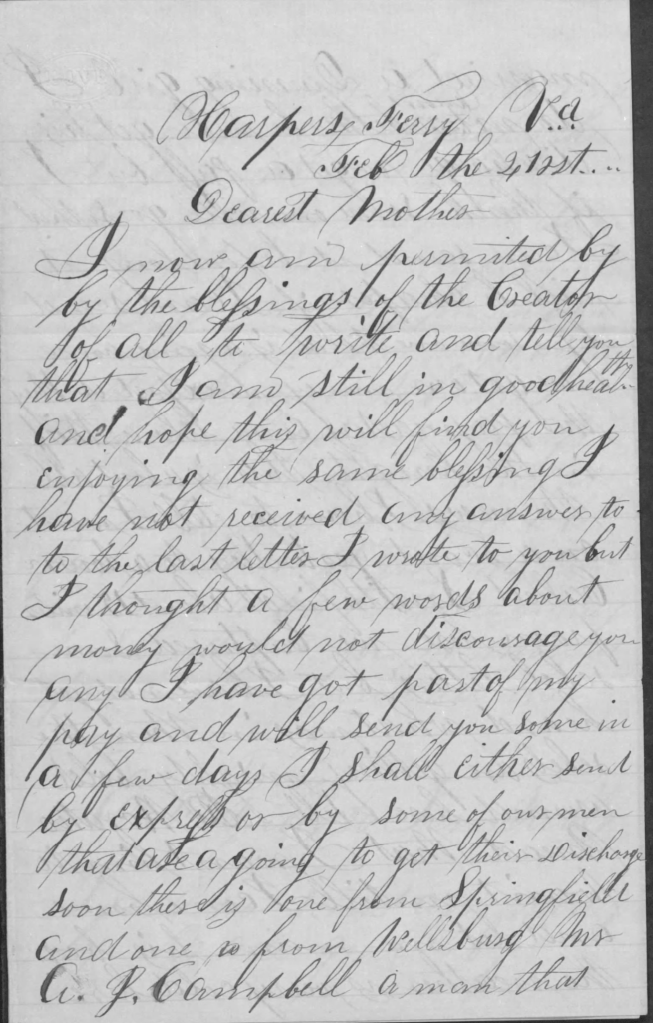 Harpers Ferry Va
Feb the 21st....
Dearest Mother
I now am permited by
by the blessings of the Creator
of all to write and tell you
that I am still in good health
and hope this will find you
enjoying the same blessing I
have not received any answer to
to the last letter I wrote to you but
I thought a few words about
money would not discourage you
any I have got part of my
pay and will send you some in
a few days I shall either send
by express or by some of our men
that are a going to get their Discharge
soon there is one from Springfield
and one is from Wellsburg Mr
A. J. Campbell a man that